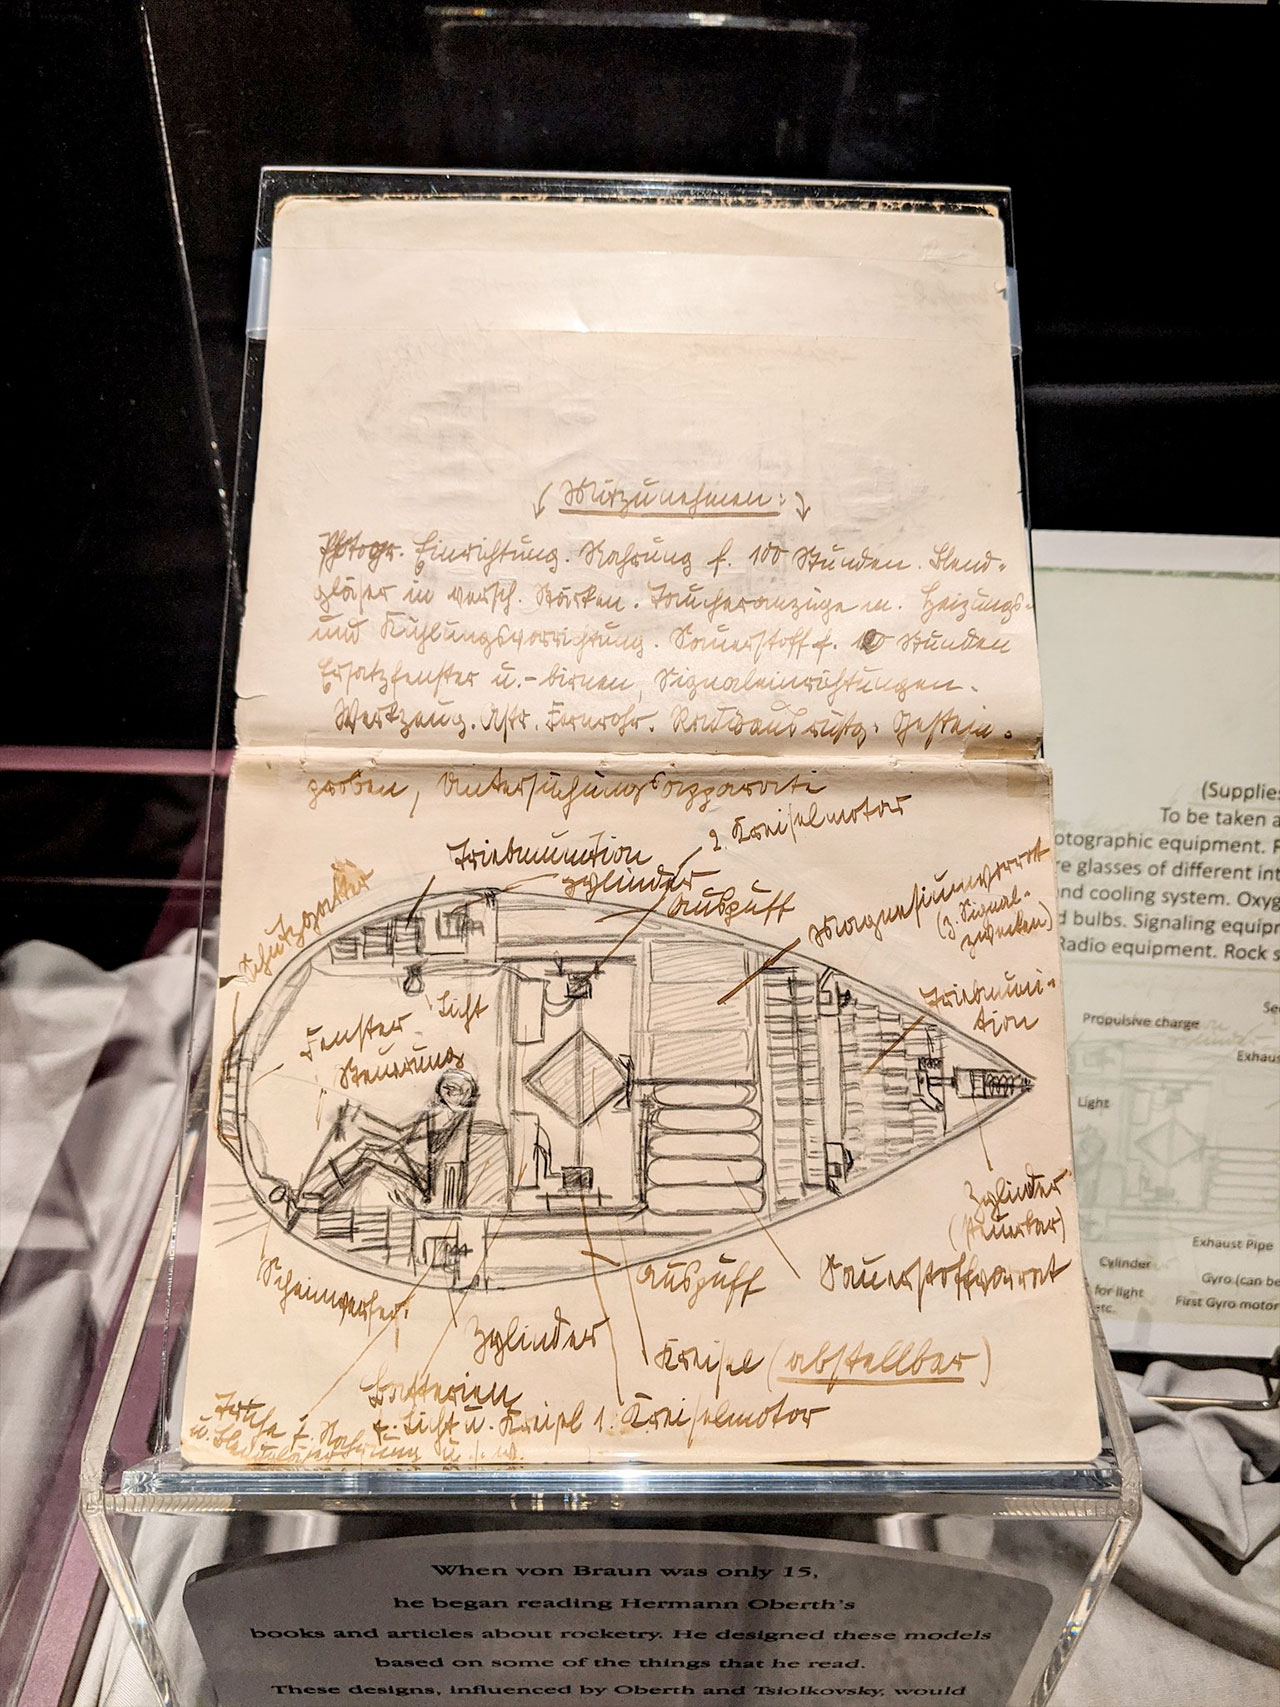 Mitzunehmen:
Photogr. Einrichtung. Nahrung f. 100 Stunden. Blend-
gläser in versch. Stärken. Taucheranzüge m. Heizungs-
und Kühlungsvorrichtung. Sauerstoff f. Stunden
Ersatzfenster u. -birnen, Signaleinrichtungen.
Werkzeug. Astr. Fernrohr. Gestein-
proben, Untersuchungsapparate
2. Kreiselmotor
Triebmunition
zylinder
Auspuff
Magnesiumvorrat
(z. Signal-
zwecken)
Schutzgatter
Fenster
Licht
Steuerung
Triebmuni-
tion
Zylinder
(steuerbar)
Scheinwerfer
Zylinder
Auspuff
Sauerstoffvorrat
Kreisel (abstellbar)
Batterien
f. Licht u. Kreisel
1. Kreiselmotor
Truhe f. Nahrung
u. Blendgläser u.s.w.
(Supplie
To be taken a
otographic equipment. F
re glasses of different int
nd cooling system. Oxyg
d bulbs. Signaling equipr
Radio equipment. Rock s
Propulsive charge
Exhaus
Light
Exhaust Pipe
Cylinder
Gyro (can be
for light
etc.
First Gyro motor
When von Braun was only 15,
he began reading Hermann Oberth's
books and articles about rocketry. He designed these models
based on some of the things that he read.
These designs, influenced by Oberth and Tsiolkovsky, would